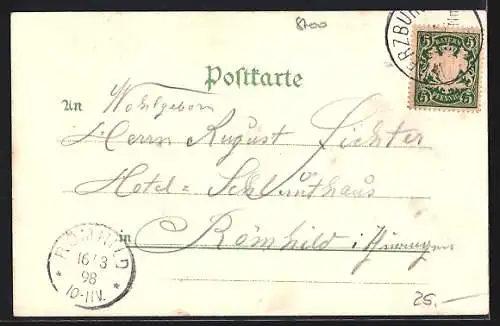 8700
RZBUR
BAYERN
5 5
5 PFENNIG 5
Postkarte
An Wohlgeborn
Herrn August Fichter
Hotel =
in Römhild i/Thüringen
RÖMHILD
16/3
98
10-11V.
25.-